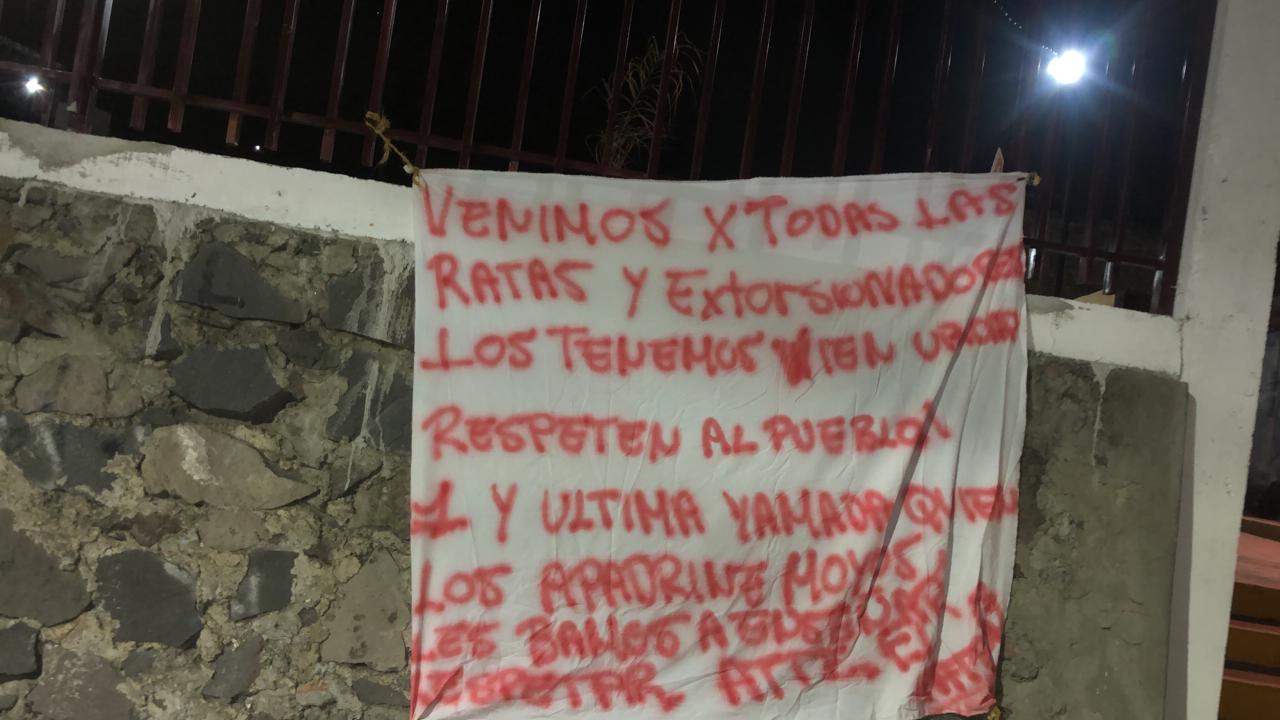 VENIMOS X TODAS LAS
RATAS Y ExtorsionADORES
LOS TENEMOS BIEN UBICAD
RESPETEN AL PUEBLO
1 Y ULTIMA YAMADA QUIEN
LOS APADRINE MOVOS
LES BAMOS A ENSEÑAR A
RESPETAR ATT